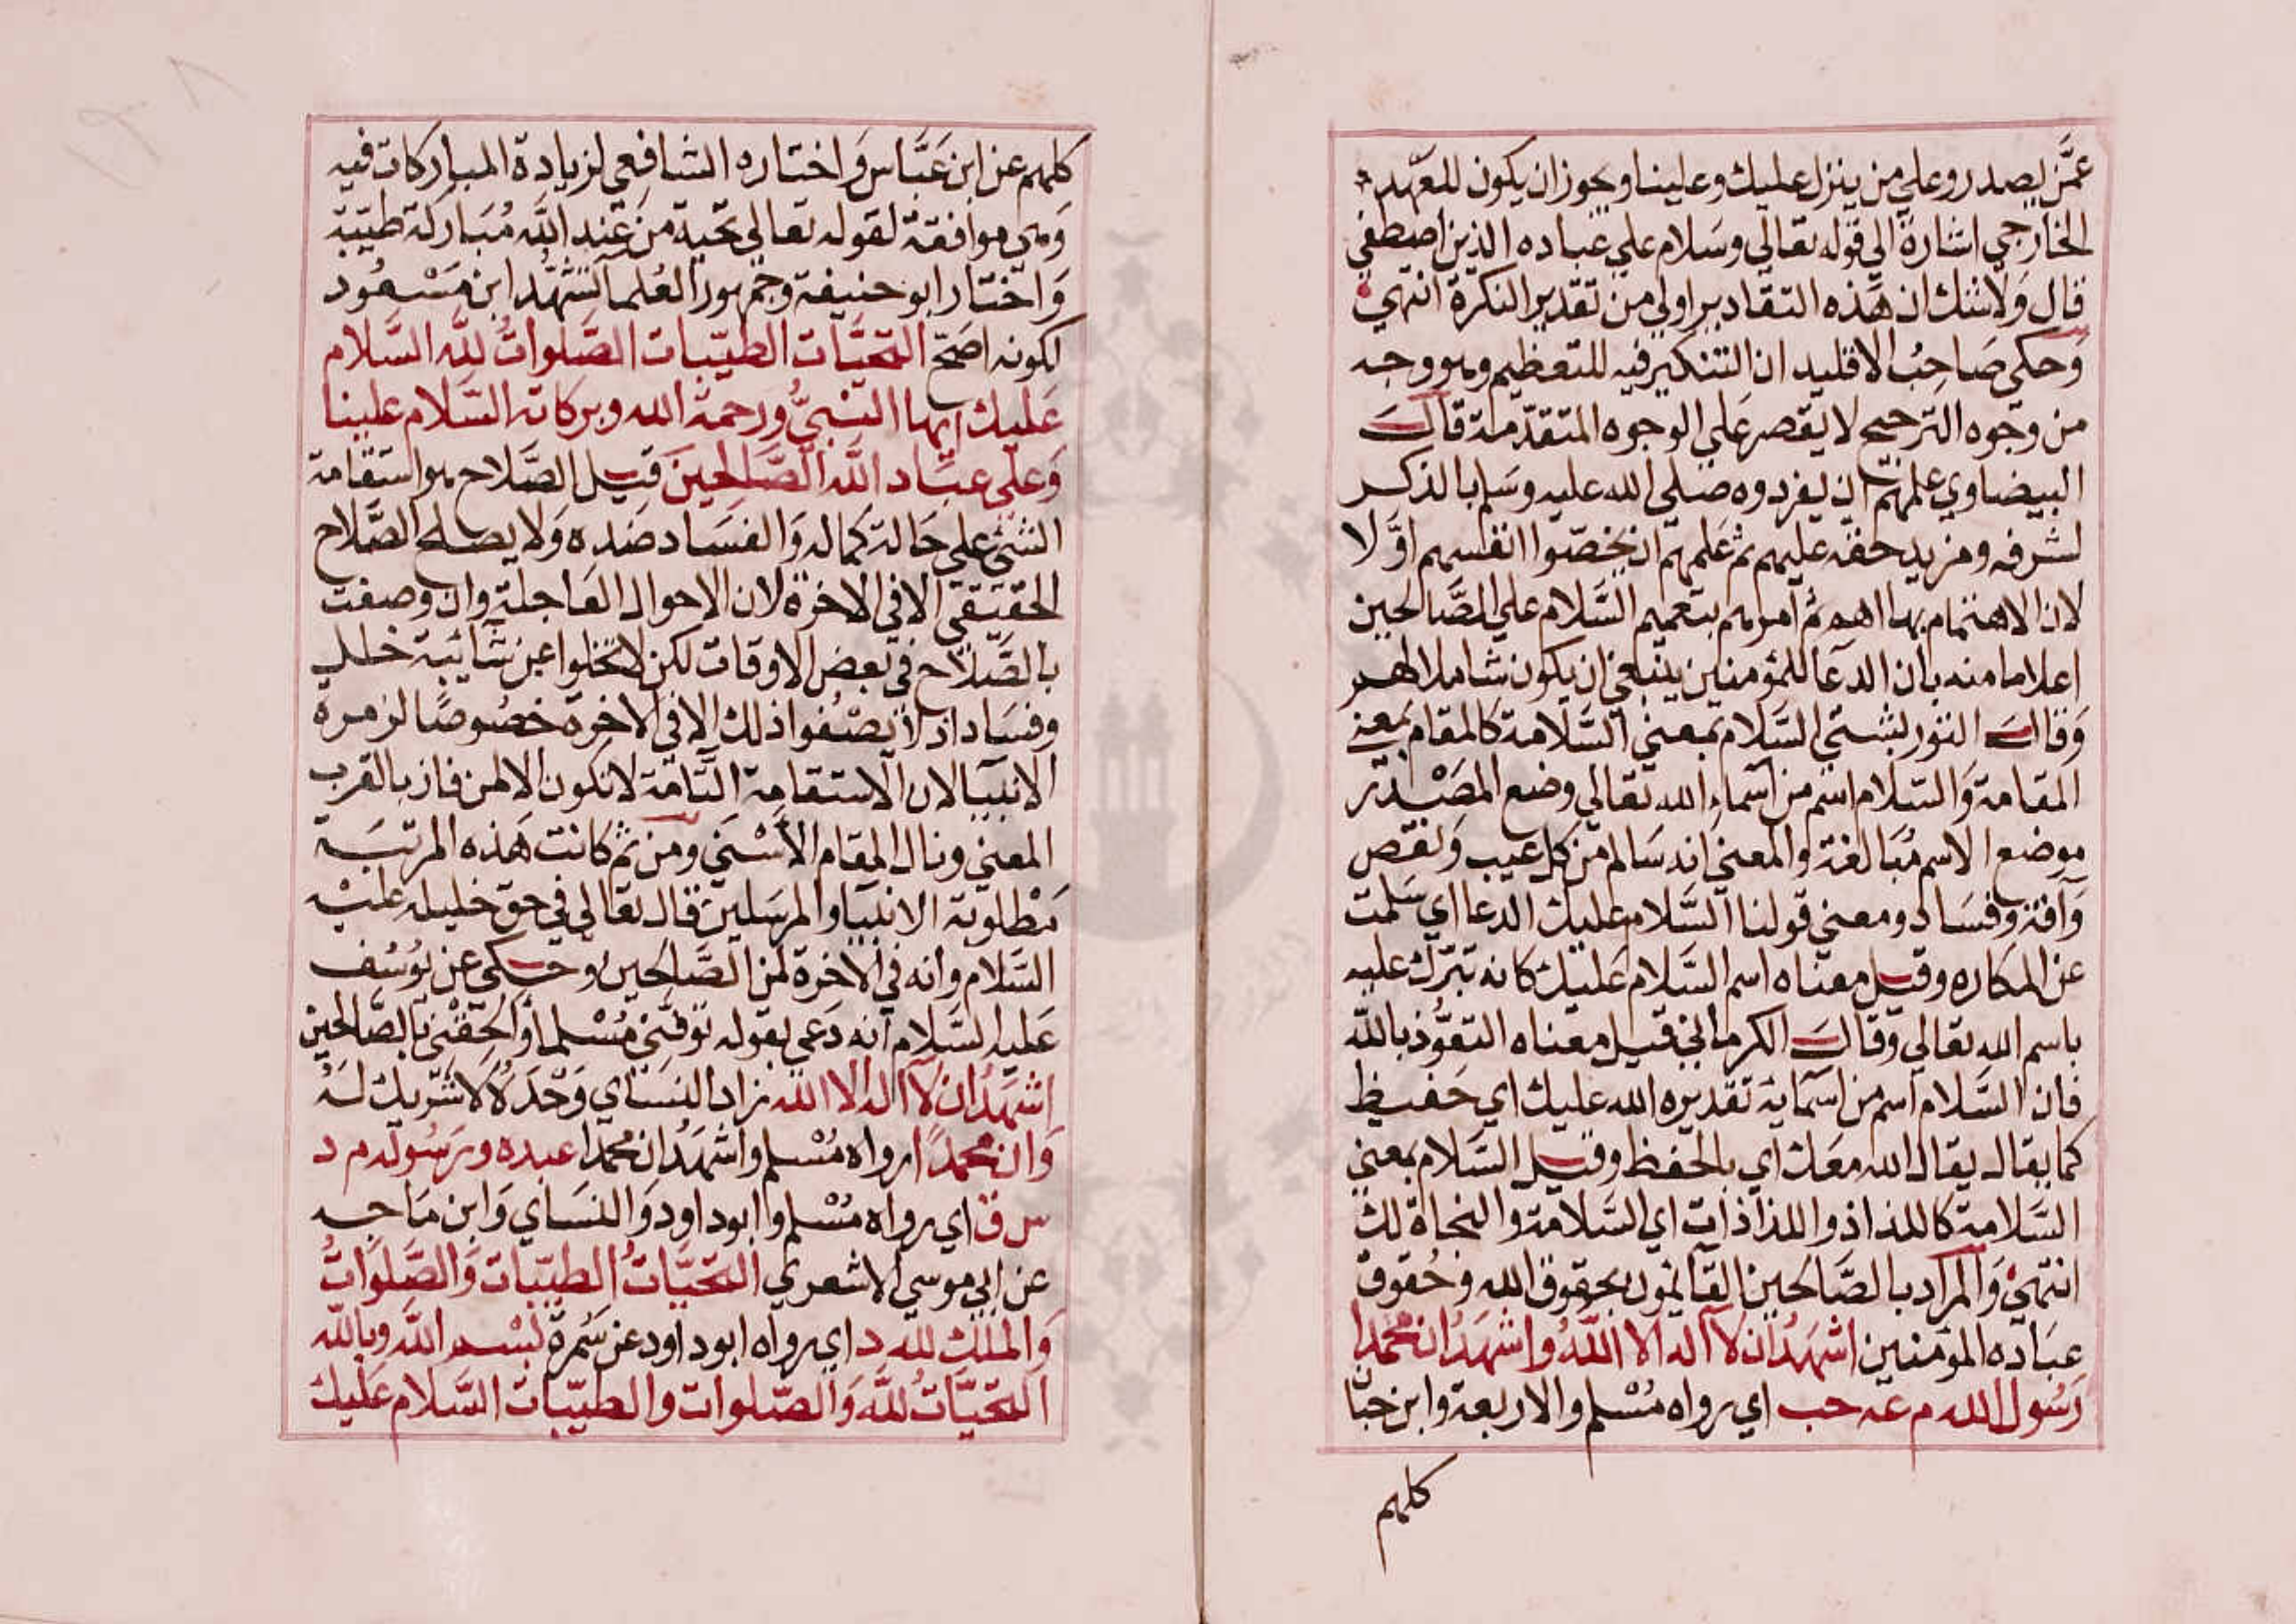 عمَّن يصدر وعلي من ينزل عليك وعلينا ويجوز ان يكون للعهد
الخارجي اشارة الي قوله تعالي وسلام علي عباده الذين اصطفي
قال ولا شك ان هذه التقادير اولي من تقدير النكرة انتهي
وحكي صاحب الاقليد ان التنكير فيه للتعظيم وهو وجه
من وجوه الترجيح لا يقصر علي الوجوه المتقدّمة قال
البيضاوي علمهم ان يفردوه صلي الله عليه وسلم بالذكر
لشرفه ومزيد حقه عليهم ثم علمهم ان يخصّوا انفسهم اوّلا
لان الاهتمام بها اهم ثم امرهم بتعميم السَّلام علي الصَّالحين
اعلاما منه بان الدعا للمؤمنين ينبغي ان يكون شاملا لهم
وقال التوربشتي السَّلام بمعني السَّلامة كالمقام بمعني
المقامة والسَّلام اسم من اسماء الله تعالي وضع المصْدر
موضع الاسم مُبالغة والمعني انه سالم من كل عيب ونقص
وآفة وفساد ومعني قولنا السَّلام عليك الدعا اي سَلمت
عن المكاره وقيل معناه اسم السَّلام عليك كانه تبرّك عليه
باسم الله تعالي وقال الكرماني قيل معناه التعوُّذ بالله
فان السَّلام اسم من اسمايه تقديره الله عليك اي حفيظ
كما يقال يقال الله معك اي بالحفظ وقيل السَّلام بمعني
السَّلامة كاللذاذ واللذاذات اي السَّلامة والنجاة لك
انتهي والمراد بالصَّالحين القائمون بحقوق الله وحُقوق
عباده المؤمنين اشهَدُ ان لا اله الا اللّهُ واشهَدُ ان محمدا
رسُول الله م عه حب اي رواه مُسْلم والاربعة وابن حبّا
كلهم
كلهم عن ابن عَبَّاس واختاره الشافعي لزيادة المباركات فيه
وهي موافقة لقوله تعالي تحية من عند الله مُبَاركة طيّبة
واختار ابو حنيفة وجمهور العُلما تشهُّد ابن مَسْعُود
لكونه اصَحّ التحيَّات الطيّبات الصَّلواتُ للَّه السَّلام
عَليك ايها النبيُّ ورحمة الله وبركاته السَّلام علينا
وَعلي عبَاد الله الصَّالحينَ قيل الصَّلاح هو استقامة
الشئ علي حالة كماله والفسَاد ضده ولا يصلح الصَّلاح
الحقيقي الا في الاخرة لان الاحوال العاجلة وان وصفت
بالصَّلاح في بعض الاوقات لكن لا تخلوا عن شائبة خلل
وفسَاد اذ لا يصْفوا ذلك الا في الاخرة خصُوصًا لزمرة
الانبيا لان الاستقامة التامّة لا تكون الا لمن فاز بالقرب
المعني ونال المقام الأسْني ومن ثم كانت هذه المرتبَة
مَطلوبة الانبيا والمرسَلين قال تعالي في حق خليله عليْه
السَّلام وانه في الاخرة لمن الصَّالحين وحكي عن يُوسُف
عَليه السَّلام انه دَعي بقوله توفَّني مُسْلما وألحِقْني بالصَّالحين
اشهَدُ ان لا اله الا الله زاد النسَاي وَحْدَهُ لا شَريك لهُ
وَان محمدًا رواه مُسْلم واشهَدُ ان محمدا عبده ورَسُوله م د
س ق اي رواه مُسْلم وابوداود وَالنسَاي وَابن مَاجه
عن ابي موسي الاشعري التحيَّاتُ الطيّبَات وَالصَّلوَاتُ
وَالملك لله د اي رواه ابوداود عن سَمُرة بسْم اللَّه وباللّه
التحيَّاتُ للَّه وَالصَّلوات والطيّبَات السَّلام عَليك